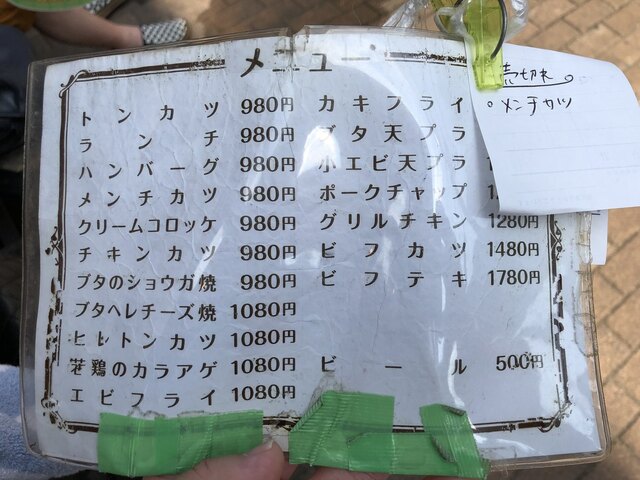 メニュー
トンカツ 980円
ランチ 980円
ハンバーグ 980円
メンチカツ 980円
クリームコロッケ 980円
チキンカツ 980円
ブタのショウガ焼 980円
ブタヘレチーズ焼 1080円
ヒレトンカツ 1080円
若鶏のカラアゲ 1080円
エビフライ 1080円
カキフライ
ブタ天プラ
小エビ天プラ
ポークチャップ
グリルチキン 1280円
ビフカツ 1480円
ビフテキ 1780円
ビール 500円
売切れ
。メンチカツ